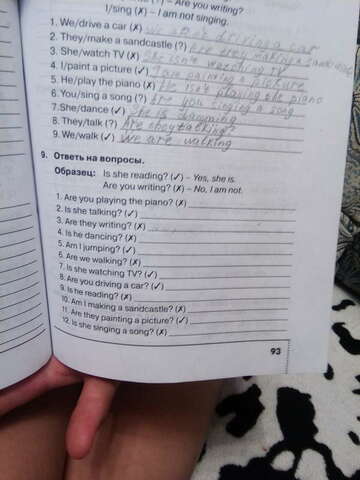 – Are you writing?
I/sing (✗) – I am not singing.
1. We/drive a car (✗) a car
2. They/make a sandcastle (?) Are they making a sandcastle
3. She/watch TV (✗) She isn't watching TV
4. I/paint a picture (✓) I am a picture
5. He/play the piano (✗) He isn't playing the piano
6. You/sing a song (?) Are you singing a song
7. She/dance (✓) She is
8. They/talk (?) Are they talking?
9. We/walk (✓) We are walking
9. Ответь на вопросы.
Образец: Is she reading? (✓) – Yes, she is.
Are you writing? (✗) – No, I am not.
1. Are you playing the piano? (✗)
2. Is she talking? (✓)
3. Are they writing? (✗)
4. Is he dancing? (✗)
5. Am I jumping? (✓)
6. Are we walking? (✗)
7. Is she watching TV? (✓)
8. Are you driving a car? (✓)
9. Is he reading? (✗)
10. Am I making a sandcastle? (✗)
11. Are they painting a picture? (✓)
12. Is she singing a song? (✗)
93